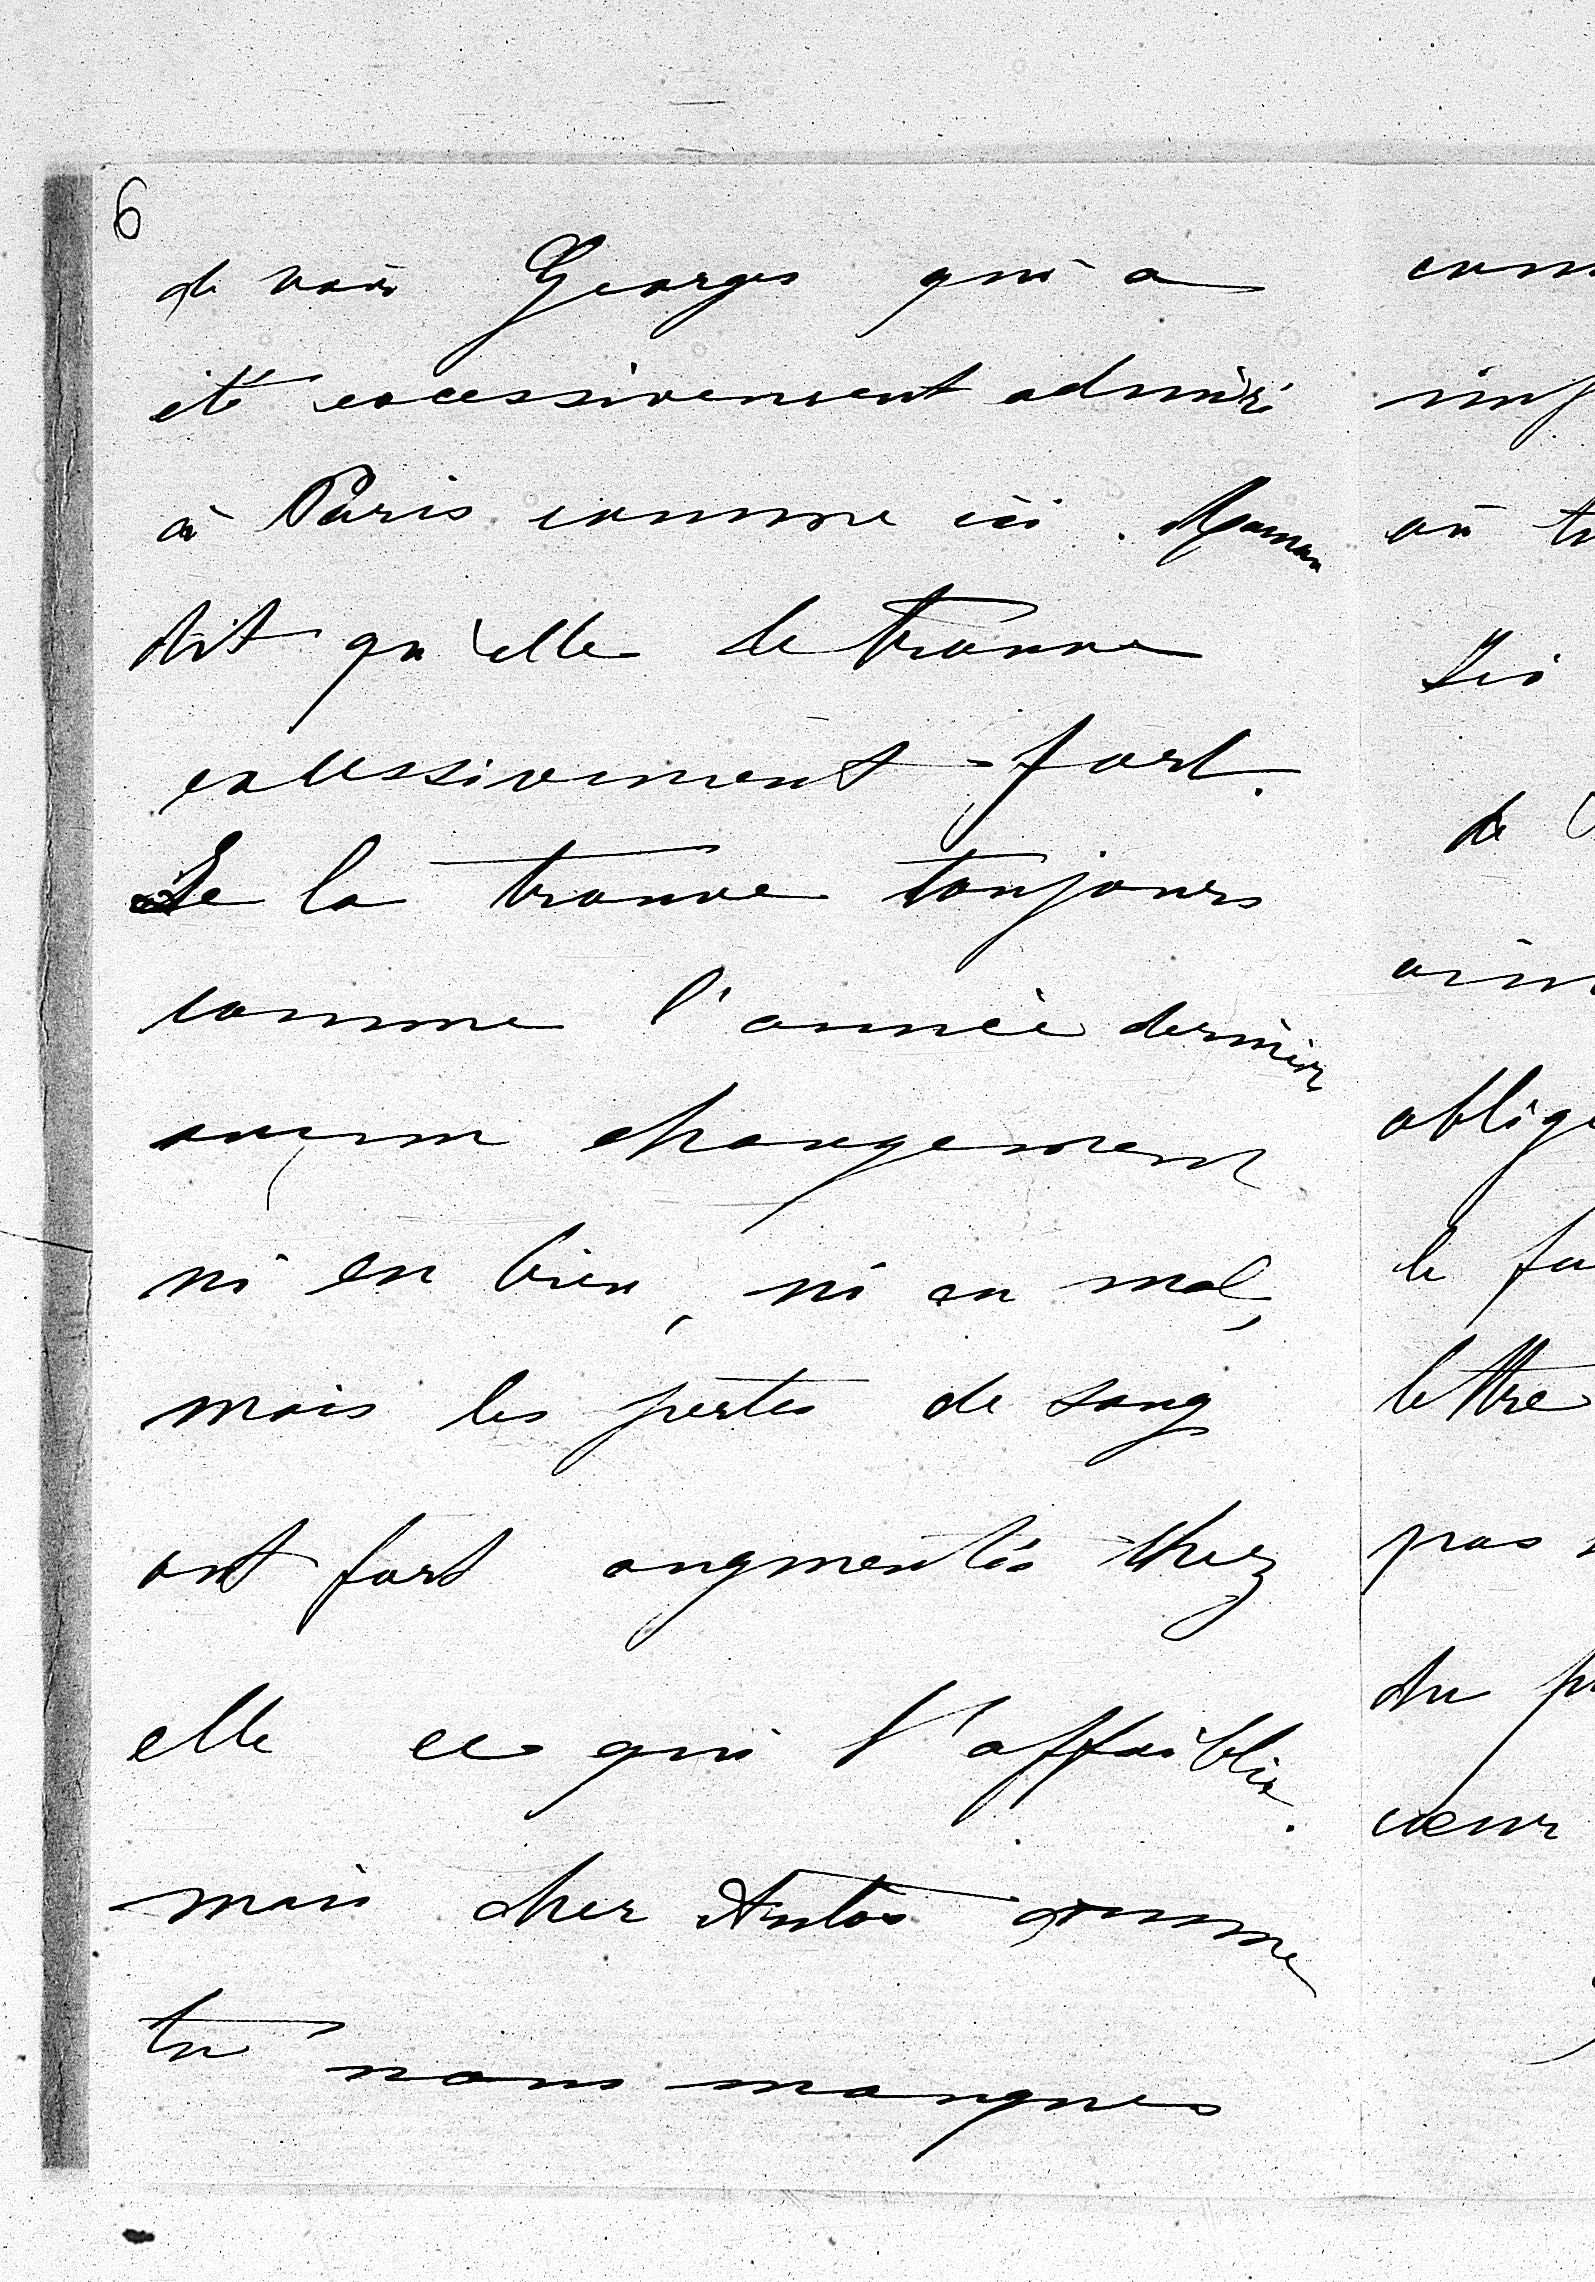 6
de voir Georges qui a
été excessivement admiré
à Paris comme ici. Maman
dit qu'elle le trouve
excessivement fort.
Je la trouve toujours
comme l'année dernièr
aucun changement
ni en bien, ni en mal,
mais les pertes de sang
ont fort augmentés chez
elle ce qui l'affaiblie.
mais cher Antos comme
tu nous manques
com
où tu
Ici
de
oblige
le fa
lettre
pas
du p
cœur